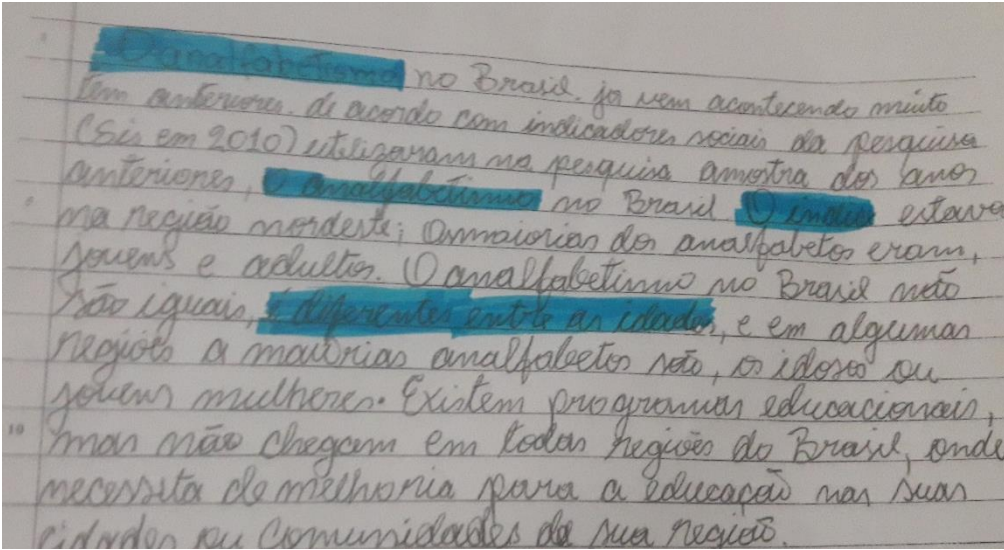 O analfabetismo no Brasil. ja vem acontecendo muito
tem anteriores. de acordo com indicadores sociais da pesquisa
(Sis em 2010) utilizaram na pesquisa amostra dos anos
anteriores, o analfabetismo no Brasil. O indice estava
na região nordeste; as maiorias dos analfabetos eram,
jovens e adultos. O analfabetismo no Brasil não
são iguais, é diferentes entre as idades, e em algumas
regiões a maiorias analfabetos são, os idosos ou
jovens mulheres. Existem programas educacionais,
10 mas não chegam em todas regiões do Brasil, onde
necessita de melhoria para a educação nas suas
cidades ou comunidades de sua região.